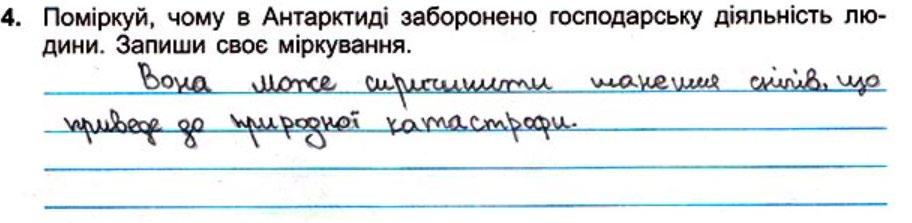 4. Поміркуй, чому в Антарктиді заборонено господарську діяльність лю-
дини. Запиши своє міркування.
Вона може спричинити танення снігів, що
приведе до природної катастрофи.